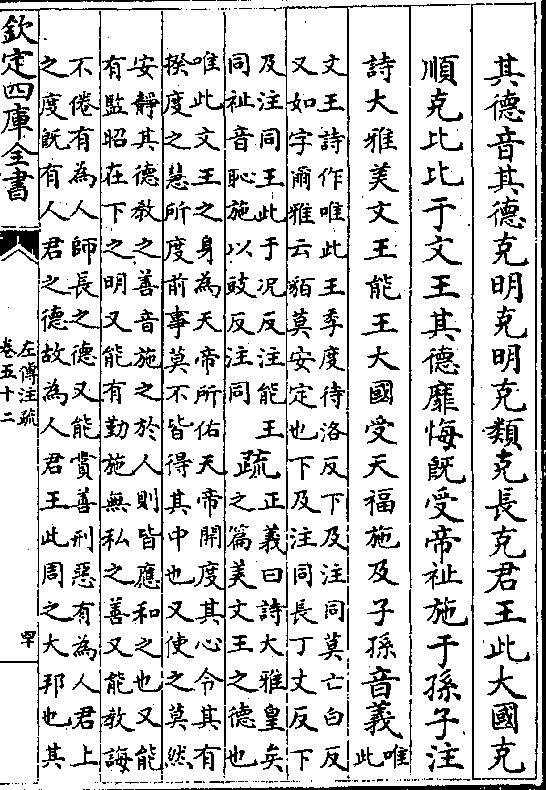 其德音其德克明克明克類克長克君王此大國克
順克比比于文王其德靡悔既受帝祉施于孫子注
詩大雅美文王能王大國受天福施及子孫音義唯此
文王詩作唯此王季度待洛反下及注同莫亡白反
又如字爾雅云貊莫安定也下及注同長丁丈反下
及注同王此于况反注能王
同祉音恥施以豉反注同
疏
正義曰詩大雅皇矣
之篇美文王之德也
唯此文王之身為天帝所佑天帝開度其心令其有
揆度之慧所度前事莫不皆得其中也又使之莫然
安靜其德教之善音施之於人則皆應和之也又能
有監昭在下之明又能有勤施無私之善又能教誨
不倦有為人師長之德又能賞善刑惡有為人君上
之度既有人君之德故為人君王此周之大邦也其
欽定四庫全書
左傳注疏
卷五十二
罕